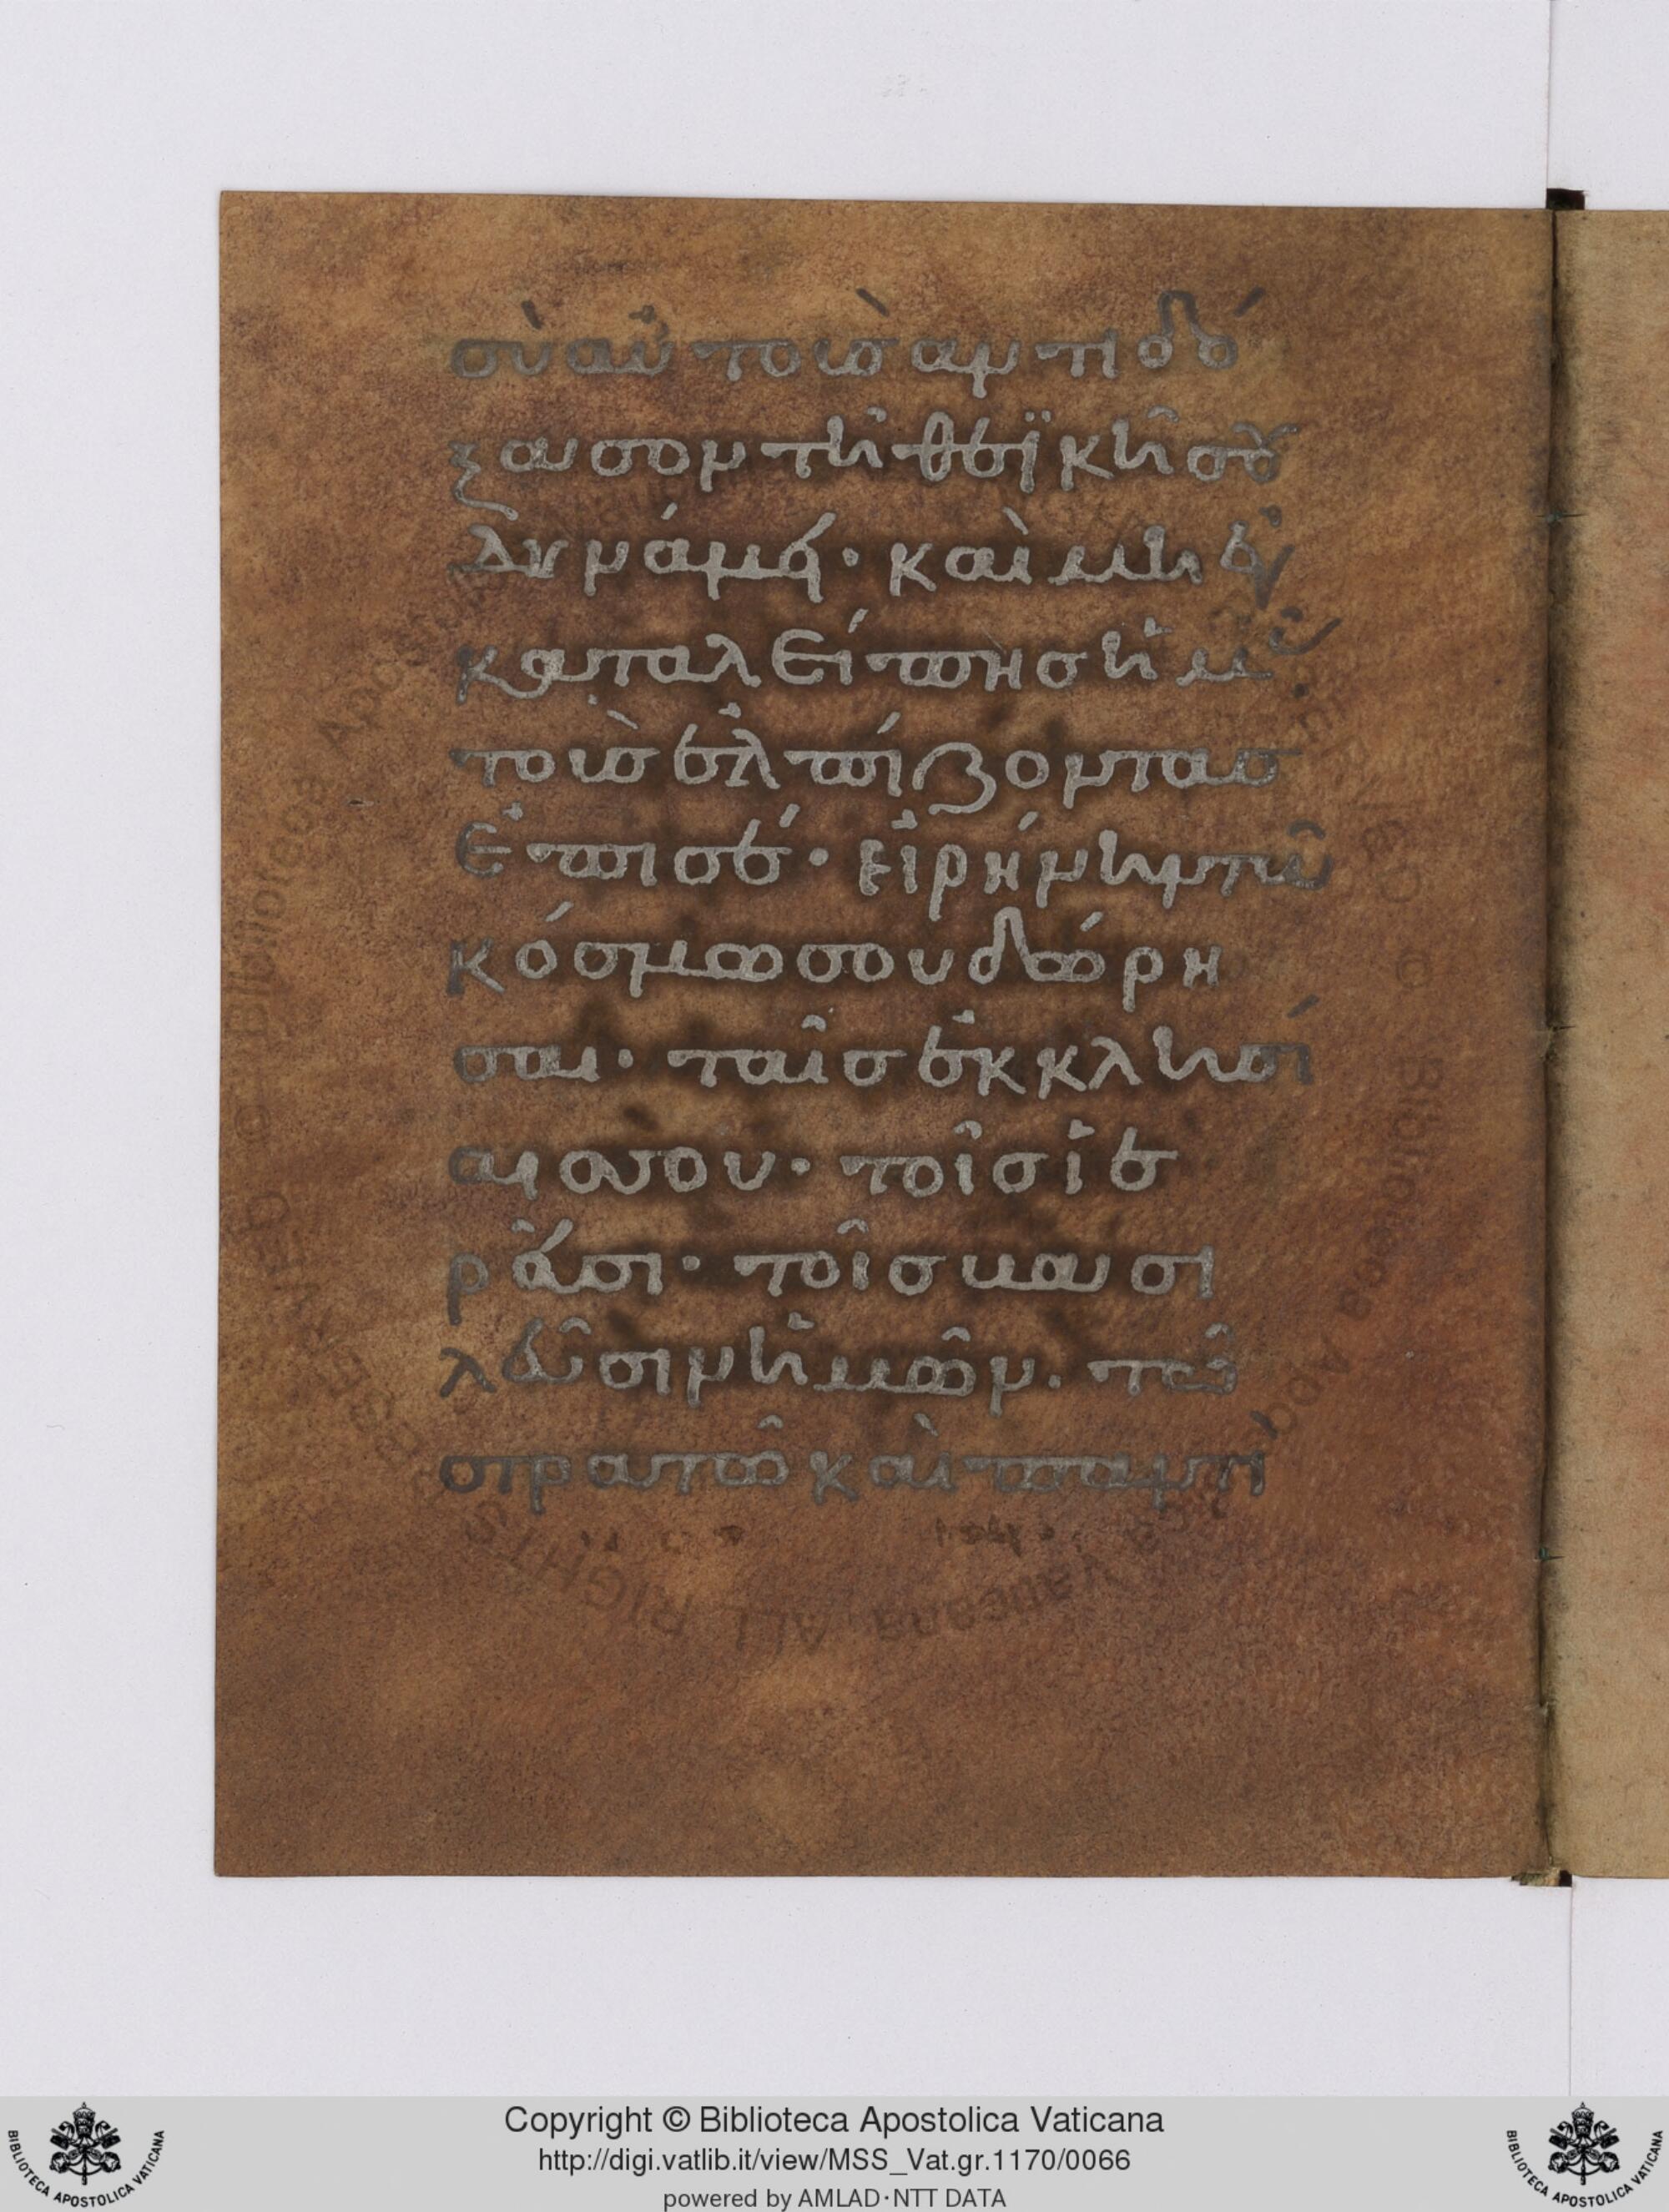 σὺ αὐτοὺς ἀντιδό
ξασον τῆ θεϊκῆ σου
δυνάμει· καὶ μὴ ἐγ
καταλείπης ἡμᾶς
τοὺς ἐλπίζοντας
ἐπὶ σέ· εἰρήνην τῶ
κόσμω σου δώρη
σαι· ταῖς ἐκκλησί
αις σου· τοῖς ἱε
ρεῦσι· τοῖς βασι
λεῦσιν ἡμῶν· τῶ
στρατῶ καὶ παντὶ
Copyright © Biblioteca Apostolica Vaticana
http://digi.vatlib.it/view/MSS_Vat.gr.1170/0066
powered by AMLAD·NTT DATA
BIBLIOTECA APOSTOLICA VATICANA
BIBLIOTECA APOSTOLICA VATICANA